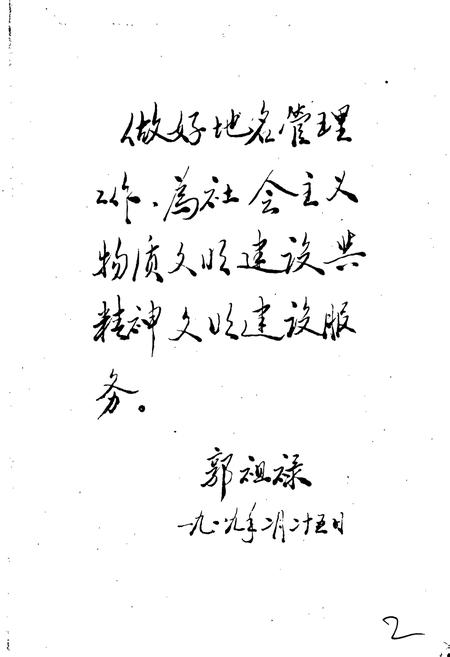 做好地名管理
工作、為社会主义
物质文明建设與
精神文明建设服
务。
郭祖禄
一九八九年二月二十五日
2